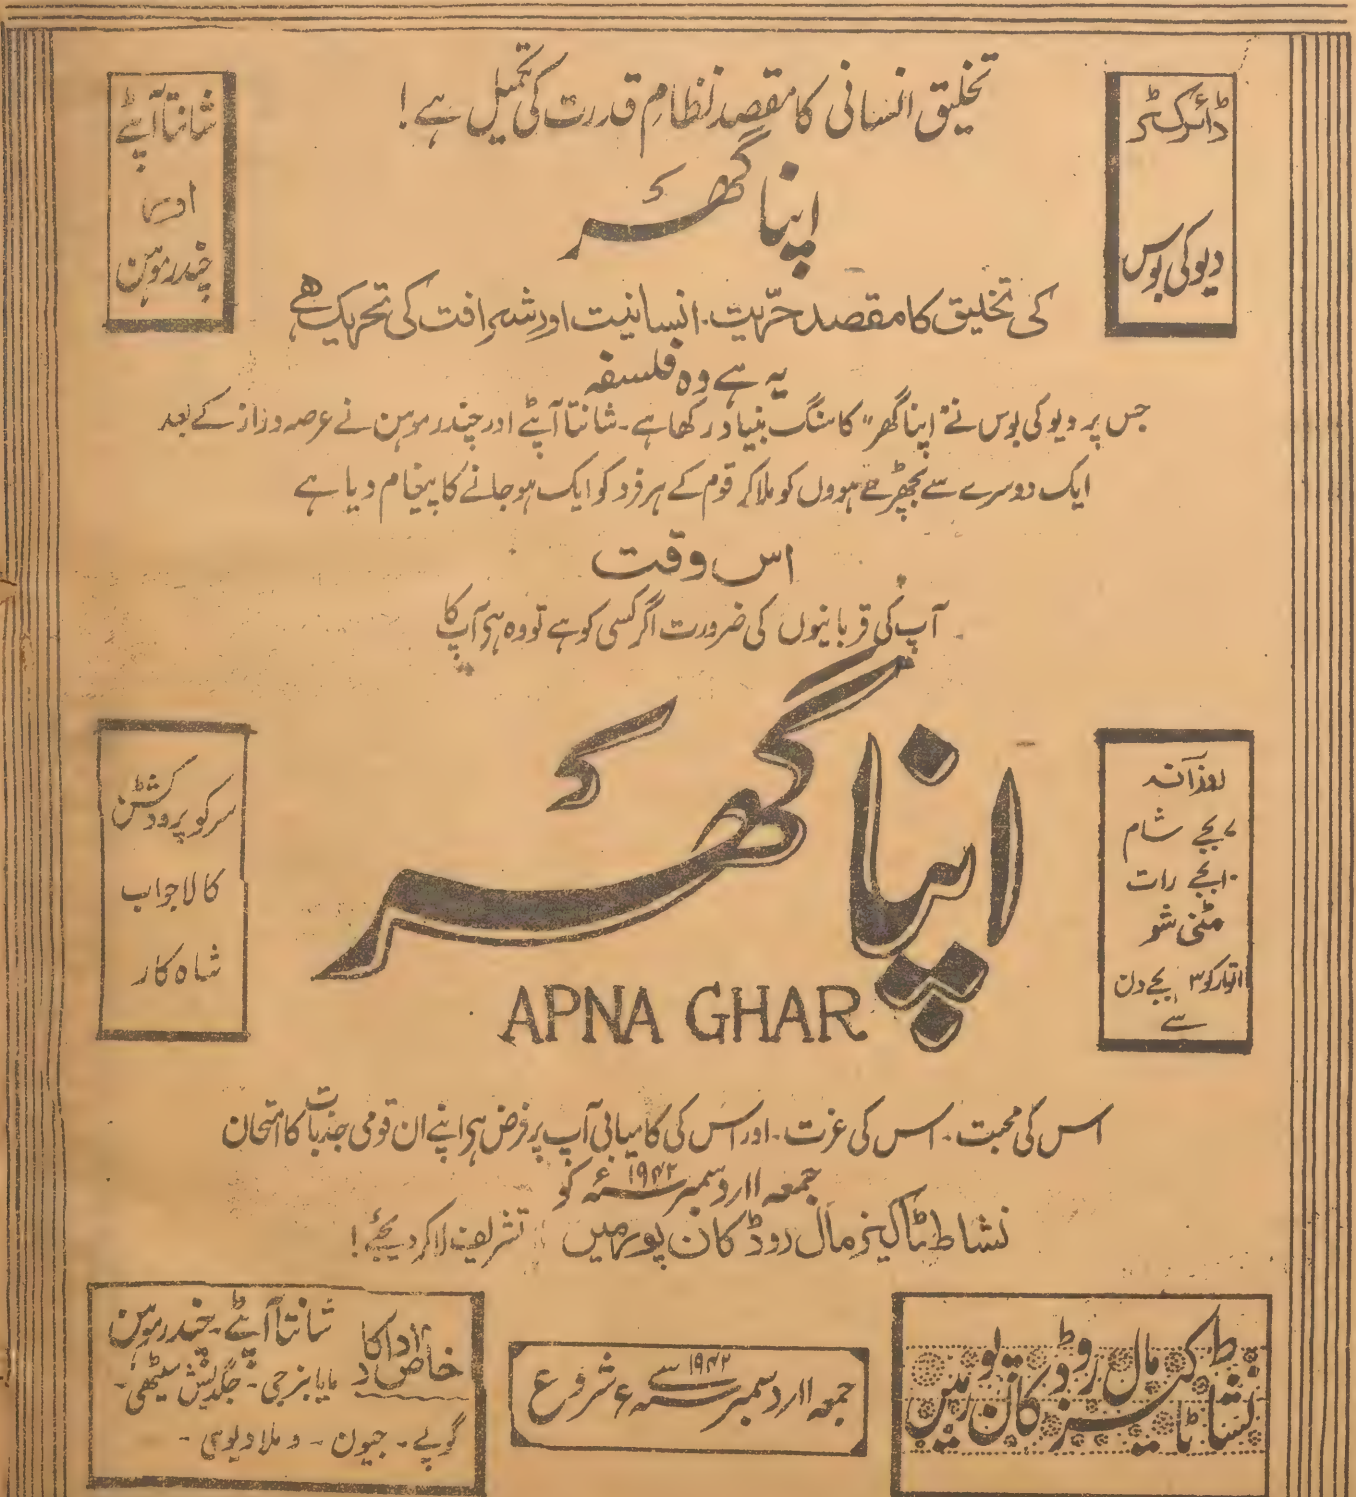 تخلیق انسانی کا مقصد نظامِ قدرت کی تکمیل ہے!
ڈائرکٹر
دیوکی بوس
شانتا آپٹے
اور
چندر موہن
اپنا گھر
کی تخلیق کا مقصد حرّیت۔ انسانیت اور شرافت کی تحریک ہے
یہ ہے وہ فلسفہ
جس پر دیوکی بوس نے "اپنا گھر" کا سنگ بنیاد رکھا ہے۔ شانتا آپٹے اور چندر موہن نے عرصہ دراز کے بعد
ایک دوسرے سے بچھڑے ہووں کو ملا کر قوم کے ہر فرد کو ایک ہو جانے کا پیغام دیا ہے
اس وقت
آپ کی قربانیوں کی ضرورت اگر کسی کو ہے تو وہ ہی آپ کا
اپنا گھر
APNA GHAR
روزآنہ
۷ بجے شام
۱۰ بجے رات
مٹنی شو
اتوار کو ۳ بجے دن
سے
سرکو پروڈکشن
کا لاجواب
شاہ کار
اس کی محبت۔ اس کی عزت۔ اور اس کی کامیابی آپ پر فرض ہی اپنے ان قومی جذبات کا امتحان
جمعہ ۱۱ر دسمبر ۱۹۴۲ء کو
نشاط ٹاکیز مال روڈ کان پور میں تشریف لا کر دیجئے!
نشاط ٹاکیز مال روڈ کان پور میں
جمعہ ۱۱ر دسمبر ۱۹۴۲ء سے شروع
خاص اداکار
شانتا آپٹے۔ چندر موہن
مایا بنرجی۔ جگدیش سیٹھی۔
گوپے۔ جیون۔ وملا دیوی۔